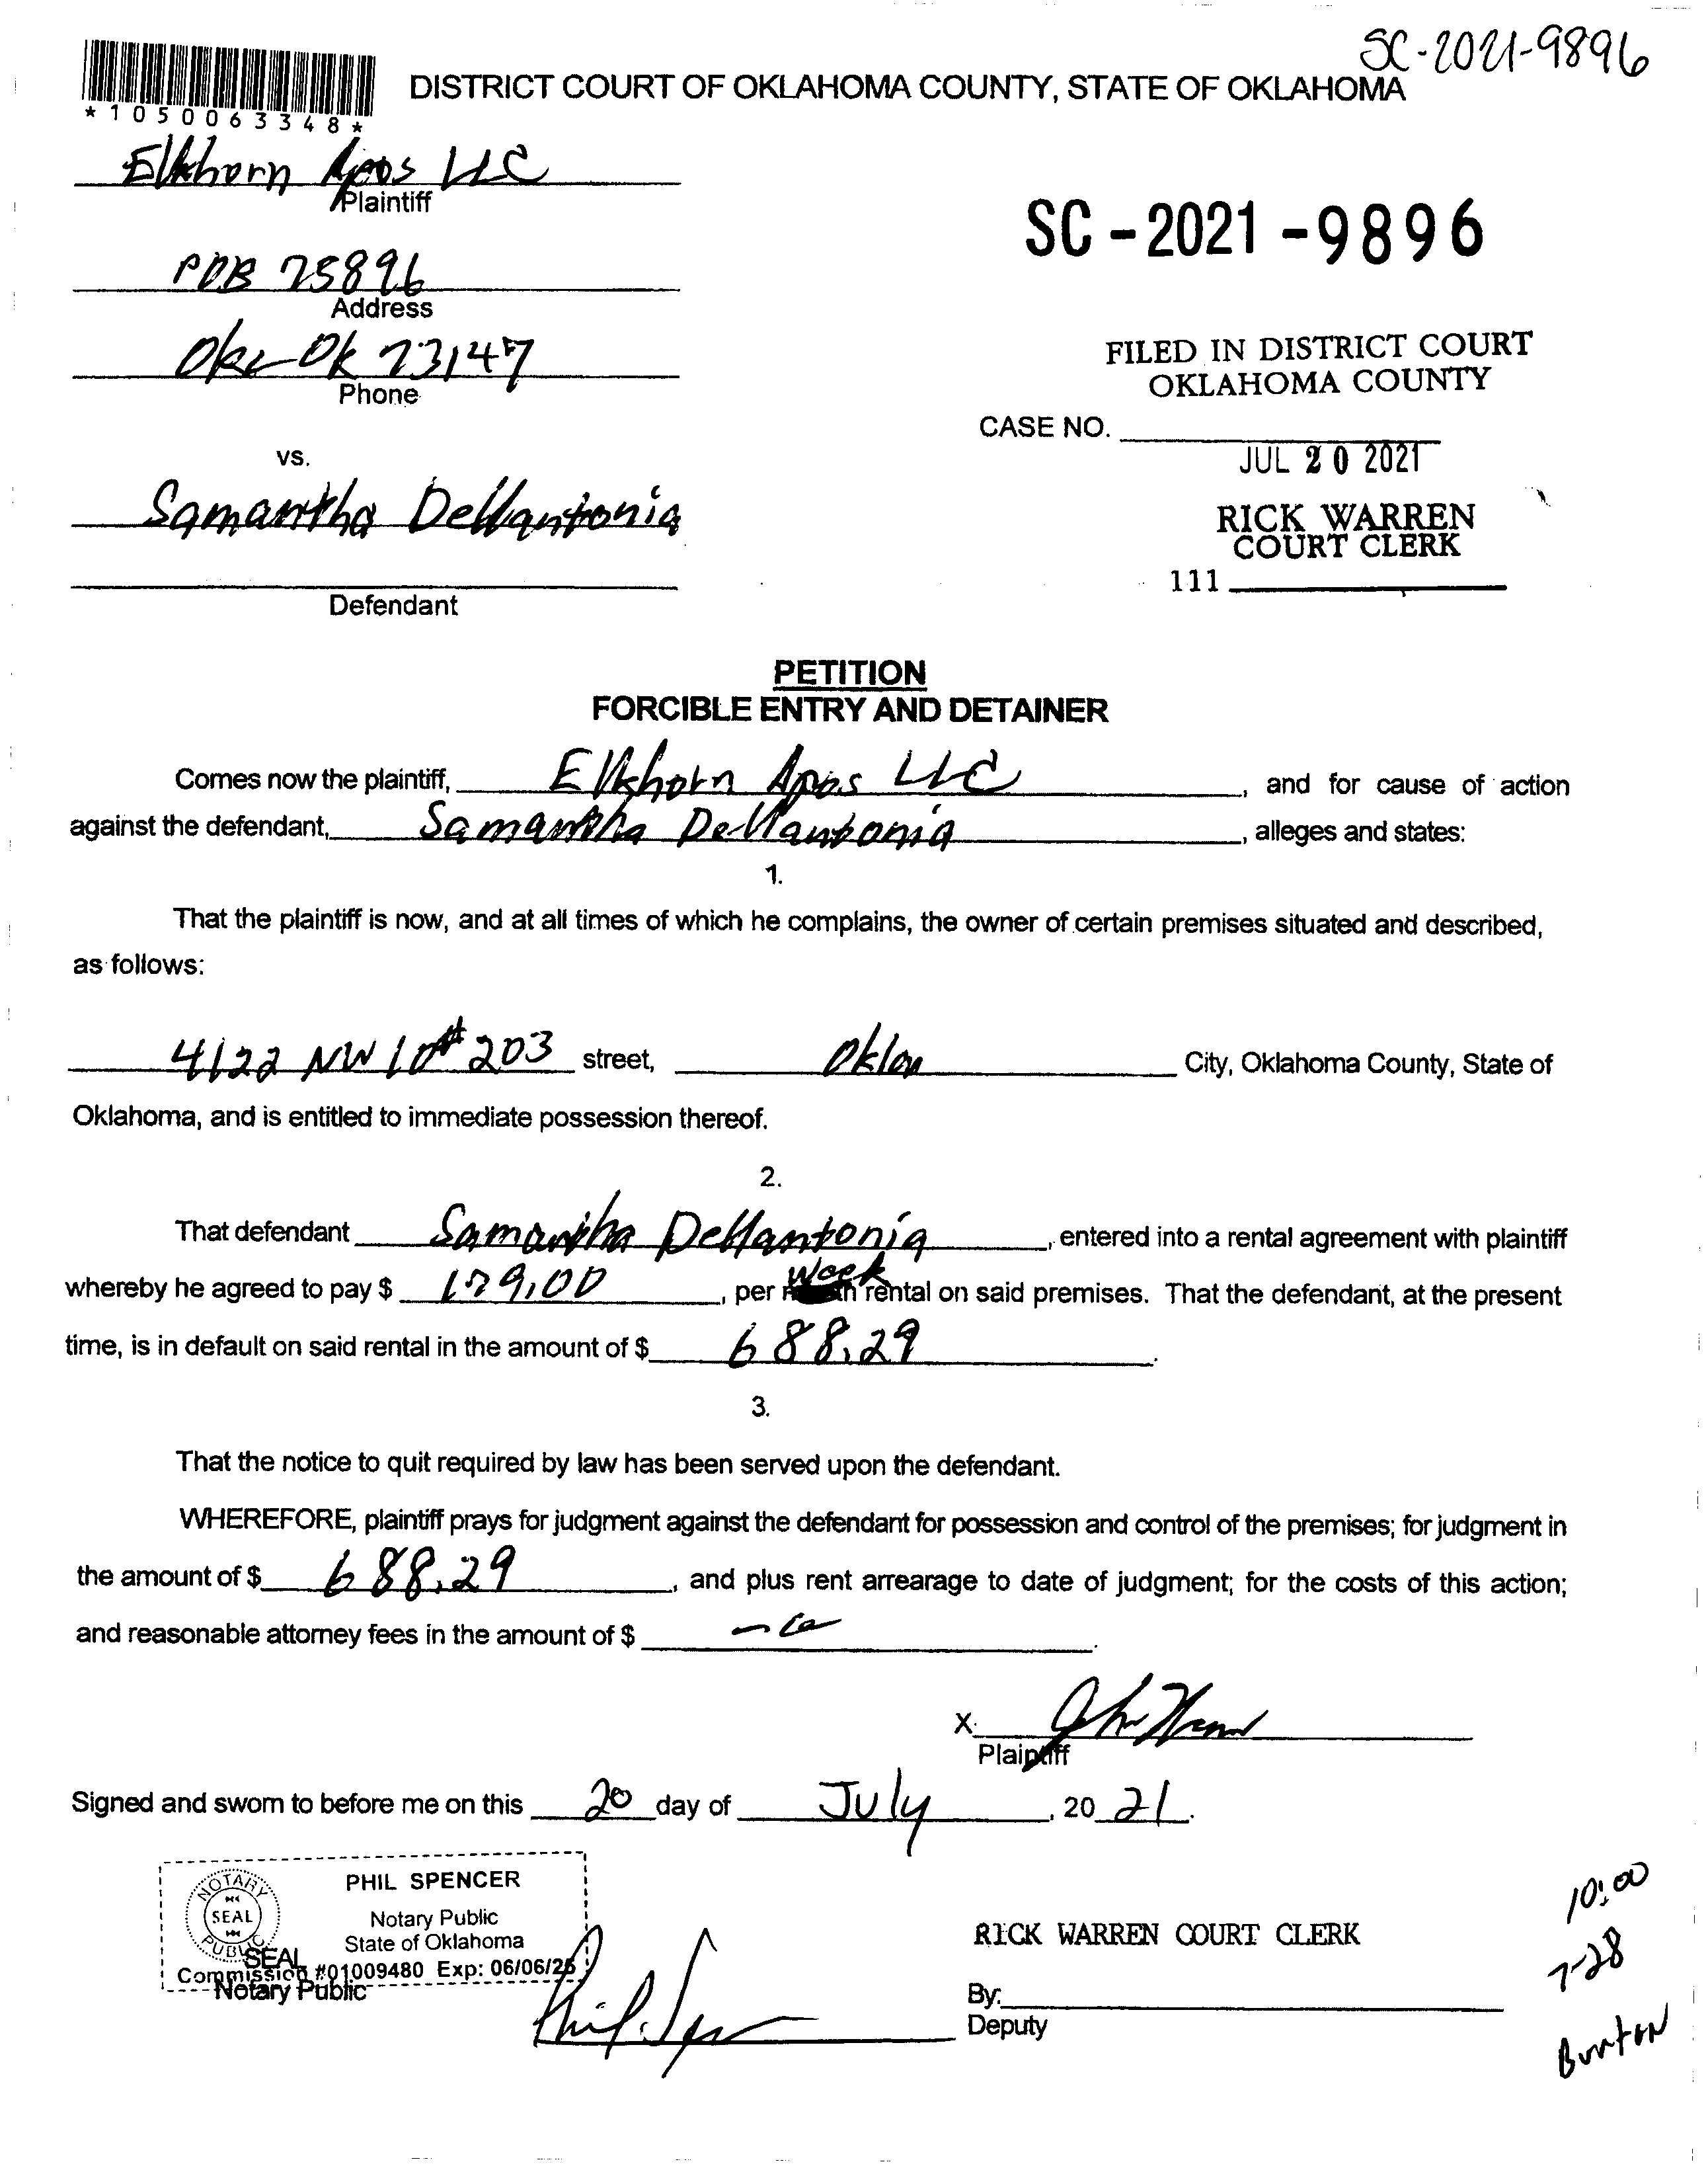 SC-2021-9896
*1050063348*
DISTRICT COURT OF OKLAHOMA COUNTY, STATE OF OKLAHOMA
Elkhorn Apos LLC
Plaintiff
SC-2021-9896
POB 75896
Address
Okc Ok 73147
Phone
FILED IN DISTRICT COURT
OKLAHOMA COUNTY
CASE NO.
JUL 20 2021
vs.
Samantha Dellantonia
RICK WARREN
COURT CLERK
111
Defendant
PETITION
FORCIBLE ENTRY AND DETAINER
Comes now the plaintiff, Elkhorn Apos LLC, and for cause of action
against the defendant, Samantha Dellantonia, alleges and states:
1.
That the plaintiff is now, and at all times of which he complains, the owner of certain premises situated and described,
as follows:
4122 NW 10 # 203 street, Oklan City, Oklahoma County, State of
Oklahoma, and is entitled to immediate possession thereof.
2.
That defendant Samantha Dellantonia, entered into a rental agreement with plaintiff
whereby he agreed to pay $ 179.00, per Week rental on said premises. That the defendant, at the present
time, is in default on said rental in the amount of $ 688.29.
3.
That the notice to quit required by law has been served upon the defendant.
WHEREFORE, plaintiff prays for judgment against the defendant for possession and control of the premises; for judgment in
the amount of $ 688.29, and plus rent arrearage to date of judgment; for the costs of this action;
and reasonable attorney fees in the amount of $
X
Plaintiff
Signed and sworn to before me on this 20 day of July, 20 21.
NOTARY PUBLIC SEAL
PHIL SPENCER
Notary Public
State of Oklahoma
Commission #01009480 Exp: 06/06/25
SEAL
Notary Public
RICK WARREN COURT CLERK
By:
Deputy
10:00
7-28
Burton